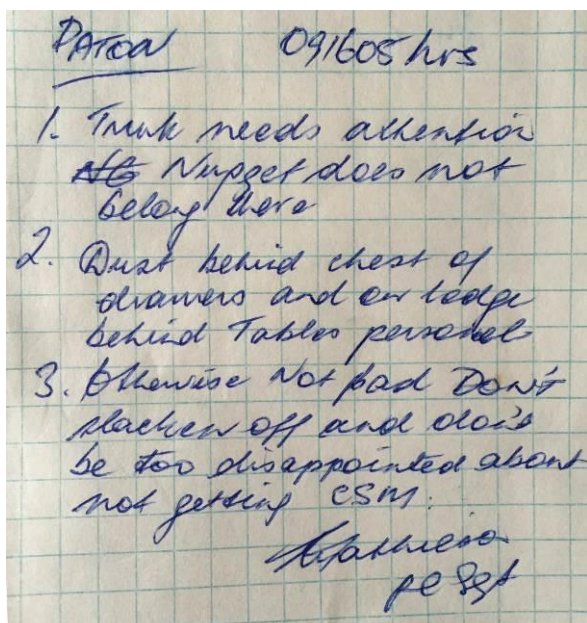 PATON 091605 hrs
1. Trunk needs attention
NG Nugget does not
belong there
2. Dust behind chest of
drawers and on ledge
behind Tables personal
3. Otherwise Not bad DON'T
slacken off and don't
be too disappointed about
not getting CSM.
Sgt